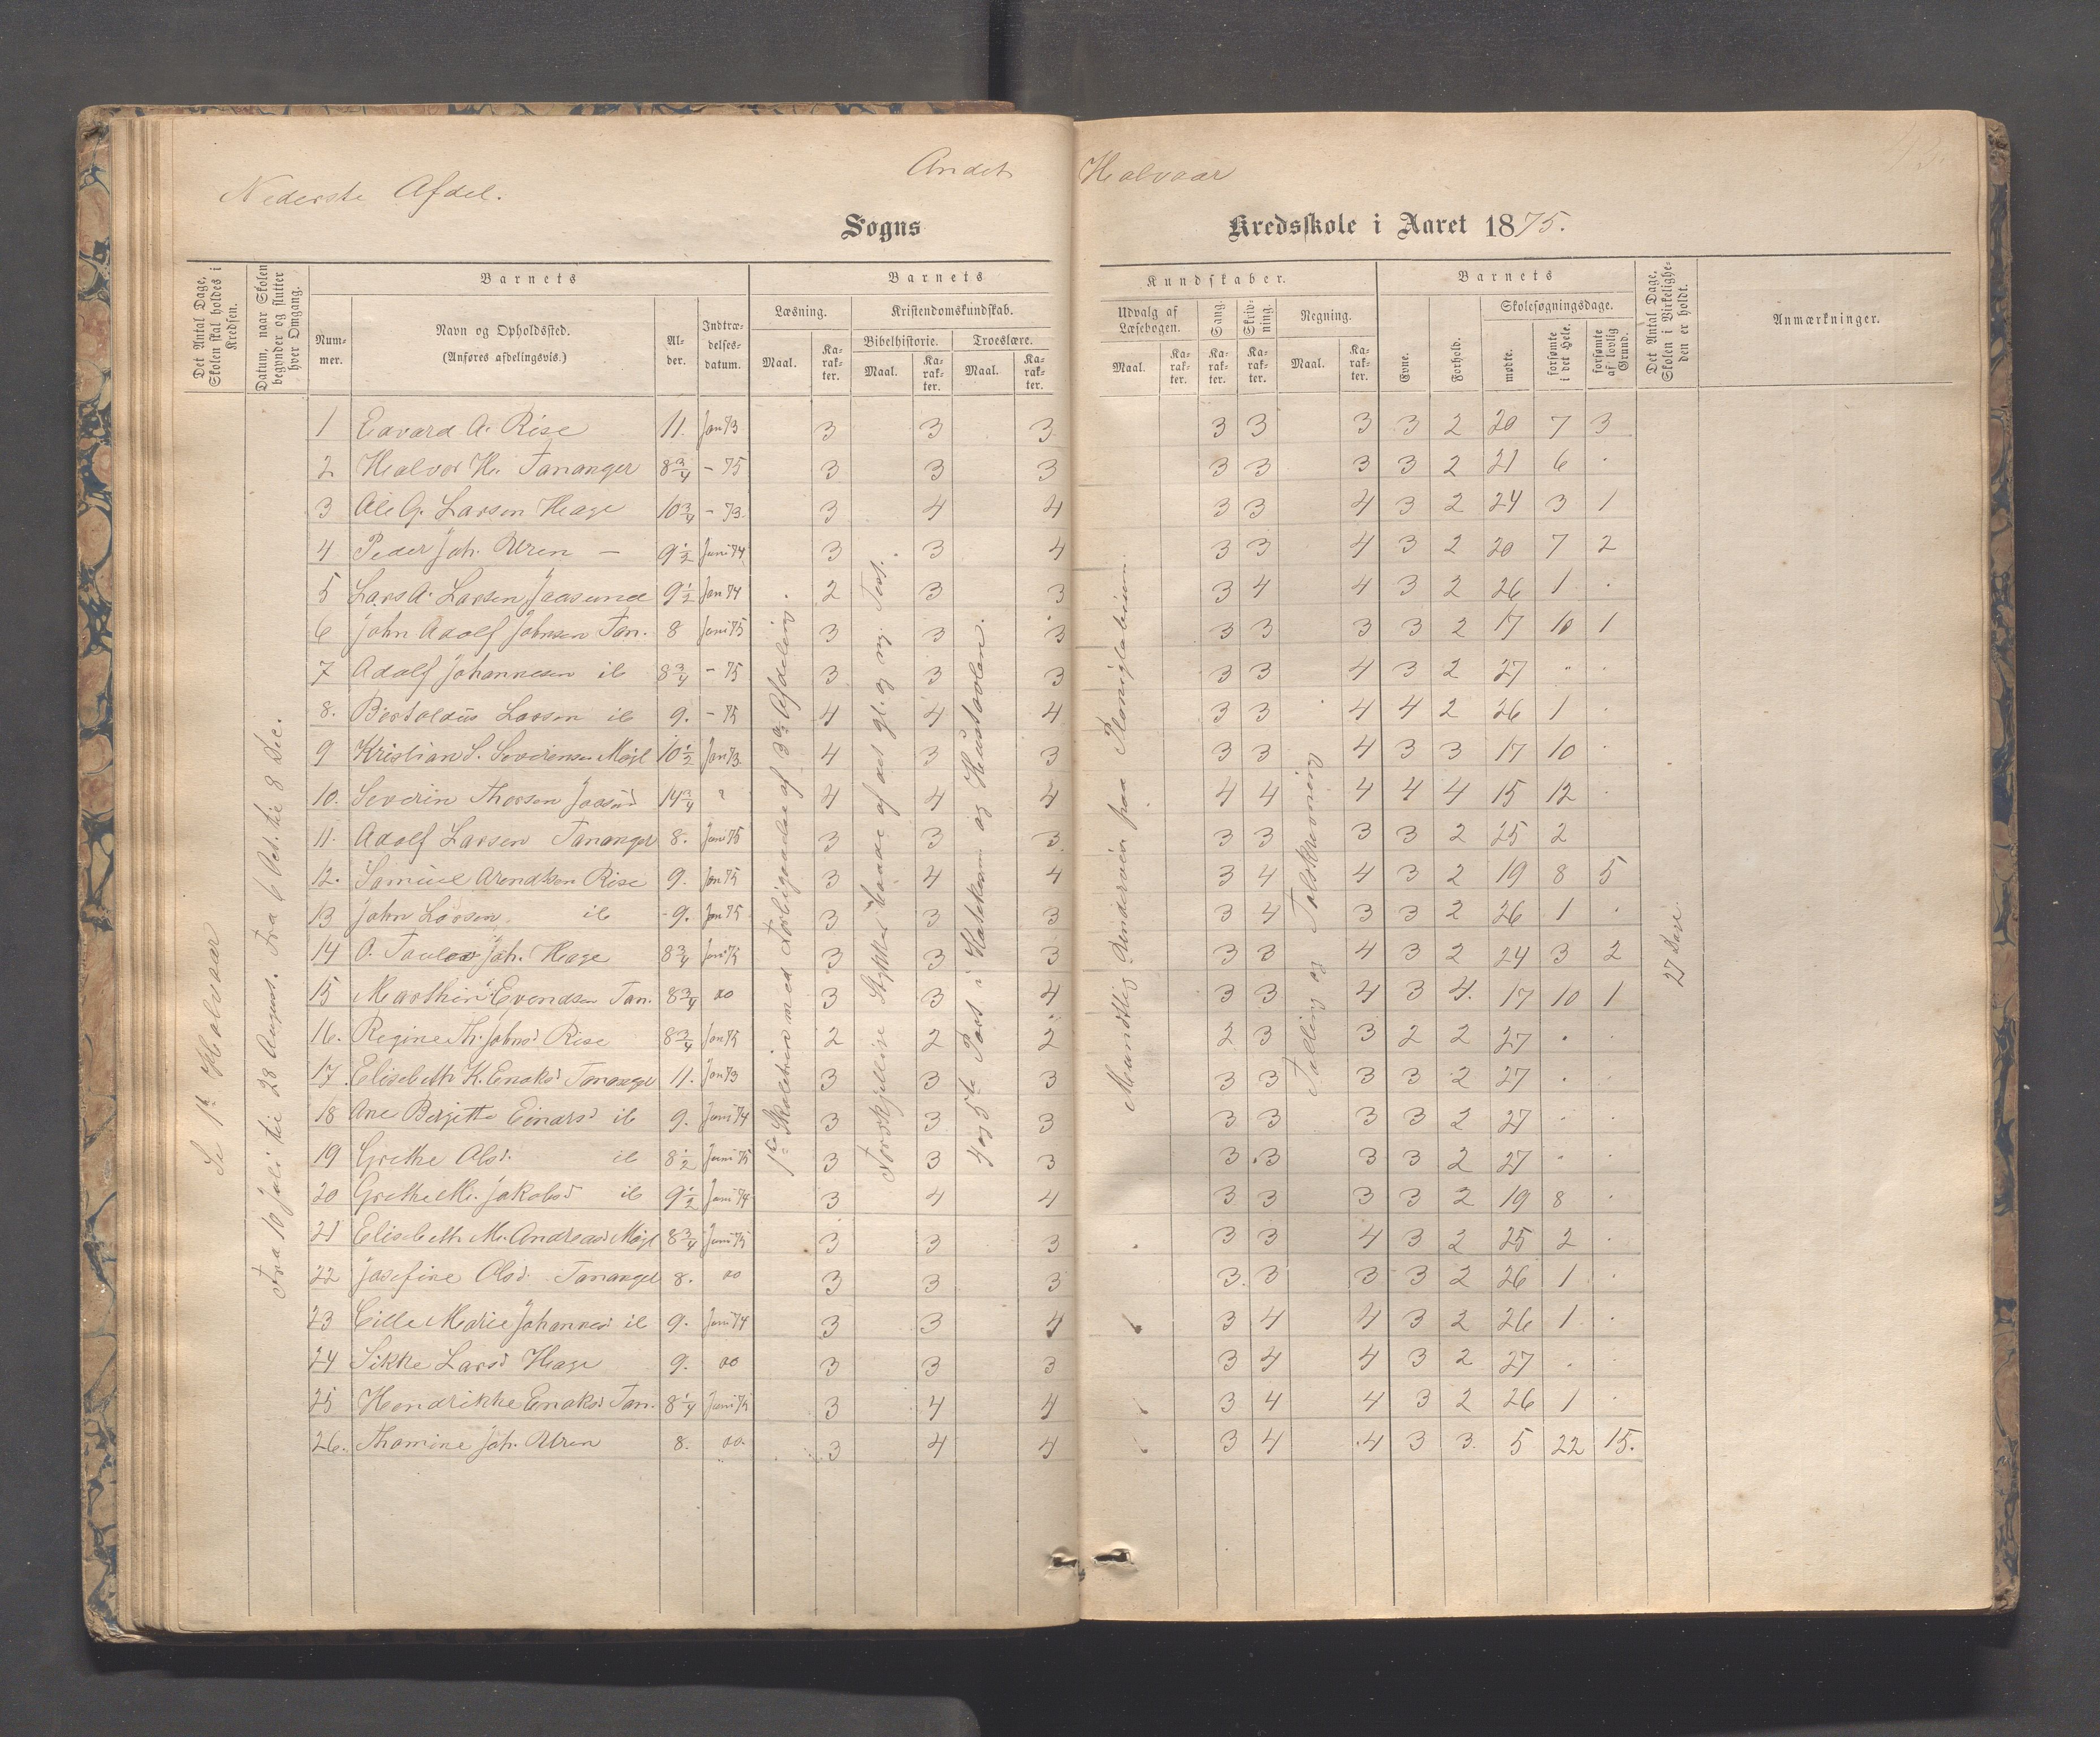 Nederste Afdel.
Andet Halvaar
Sogns Kredsskole i Aaret 1875.
Det Antal Dage, Skolen skal holdes i Kredsen.
Datum, naar Skolen begynder og slutter hver Omgang.
Barnets
Nummer.
Navn og Opholdssted.
(Anføres afdelingsvis.)
Alder.
Indtrædelsesdatum.
Barnets
Læsning.
Maal.
Karakter.
Kristendomskundskab.
Bibelhistorie.
Maal.
Karakter.
Troeslære.
Maal.
Karakter.
Kundskaber.
Udvalg af Læsebogen.
Maal.
Karakter.
Sang.
Karakter.
Skrivning.
Karakter.
Regning.
Maal.
Karakter.
Barnets
Evne.
Forhold.
Skolesøgningsdage.
mødte.
forsømte i det Hele.
forsømte af lovlig Grund.
Det Antal Dage, Skolen i Virkeligheden er holdt.
Anmærkninger.
Se 1ste Halvaar
Fra 10 Juli til 28 August. Fra 6 Oct. til 8 Dec.
af 3die Afdeling.
Forskjellige Stykker baade af det gl. og ny. Test.
4 og 5te Part i Katekism og Hustavlen.
Mundtlig
Tælling og Talskrivning
27 Dage
1 Edvard A. Risе 11. Jan 73 3 3 3 3 3 3 3 2 20 7 3
2 Halvor H. Tananger 8 3/4 – 75 3 3 3 3 3 3 3 2 21 6 .
3 Ole G. Larsen Hage 10 3/4 – 73 3 4 4 3 3 4 3 2 24 3 1
4 Peder Joh. Uren – 9 1/2 Juni 74 3 3 4 3 3 4 3 2 20 7 2
5 Lars A. Larsen Jaasund 9 1/2 Jan 74 2 3 3 3 4 4 3 2 26 1 .
6 John Adolf Johnsen Tan. 8 Juni 75 3 3 3 3 3 3 3 2 17 10 1
7 Adolf Johannesen ib 8 3/4 – 75 3 3 3 3 3 4 3 2 27 . .
8. Bertoldus Larsen ib 9. – 75 4 4 4 3 3 4 4 2 26 1 .
9 Kristian S. Severinsen Mejl 10 1/2 Jan 73 4 3 3 3 3 4 3 3 17 10 .
10. Severin Thorsen Jaasund 14 3/4 4 4 4 4 4 4 4 4 15 12 .
11. Adolf Larsen Tananger 8. Juni 75 3 3 3 3 3 3 3 2 25 2
12. Samuel Arendsen Rise 9. Jan 75 3 4 4 3 4 4 3 2 19 8 5
13 John Larsen ib 9. Jan 75 3 3 3 3 4 3 3 2 26 1 .
14 O. Joh. Hage 8 3/4 Juni 75 3 3 3 3 3 4 3 2 24 3 2
15 Marthin Evendsen Tan. 8 3/4 do 3 3 4 3 3 4 3 4. 17 10 1
16. Regine Th. Johnsd Rise 8 3/4 Jan 75 2 2 2 2 3 3 2 2 27 . .
17. Elisabeth K. Enoksd Tananger 11. Jan 73 3 3 3 3 3 3 3 2 27 . .
18 Ane Bergitte Einarsd ib 9. Juni 74 3 3 3 3 3 3 3 2 27 . .
19 Grethe Olsd. ib 8 1/2 Juni 75 3 3 3 3 3 3 3 2 27 . .
20 Grethe M. Jakobsd ib 9 1/2 Juni 74 3 4 4 3 3 3 3 2 19 8 .
21 Elisabeth M. Andreasd Mejl 8 3/4 Juni 75 3 3 3 3 3 4 3 2 25 2 .
22 Josefine Olsd. Tananger 8. do 3 3 3 3 3 3 3 2 26 1 .
23 Cille Marie Johannesd ib 9. Juni 74 3 3 4 3 4 4 3 2 26 1 .
24 Sikke Larsd Hage 9. do 3 3 3 3 4 4 3 2 27 . .
25 Hendrikke Enoksd Tan. 8 1/4 Juni 75 3 4 4 3 4 4 3 2 26 1 .
26. Thomine Joh. Uren 8. do. 3 4 4 3 4 4 3 3. 5 22 15.